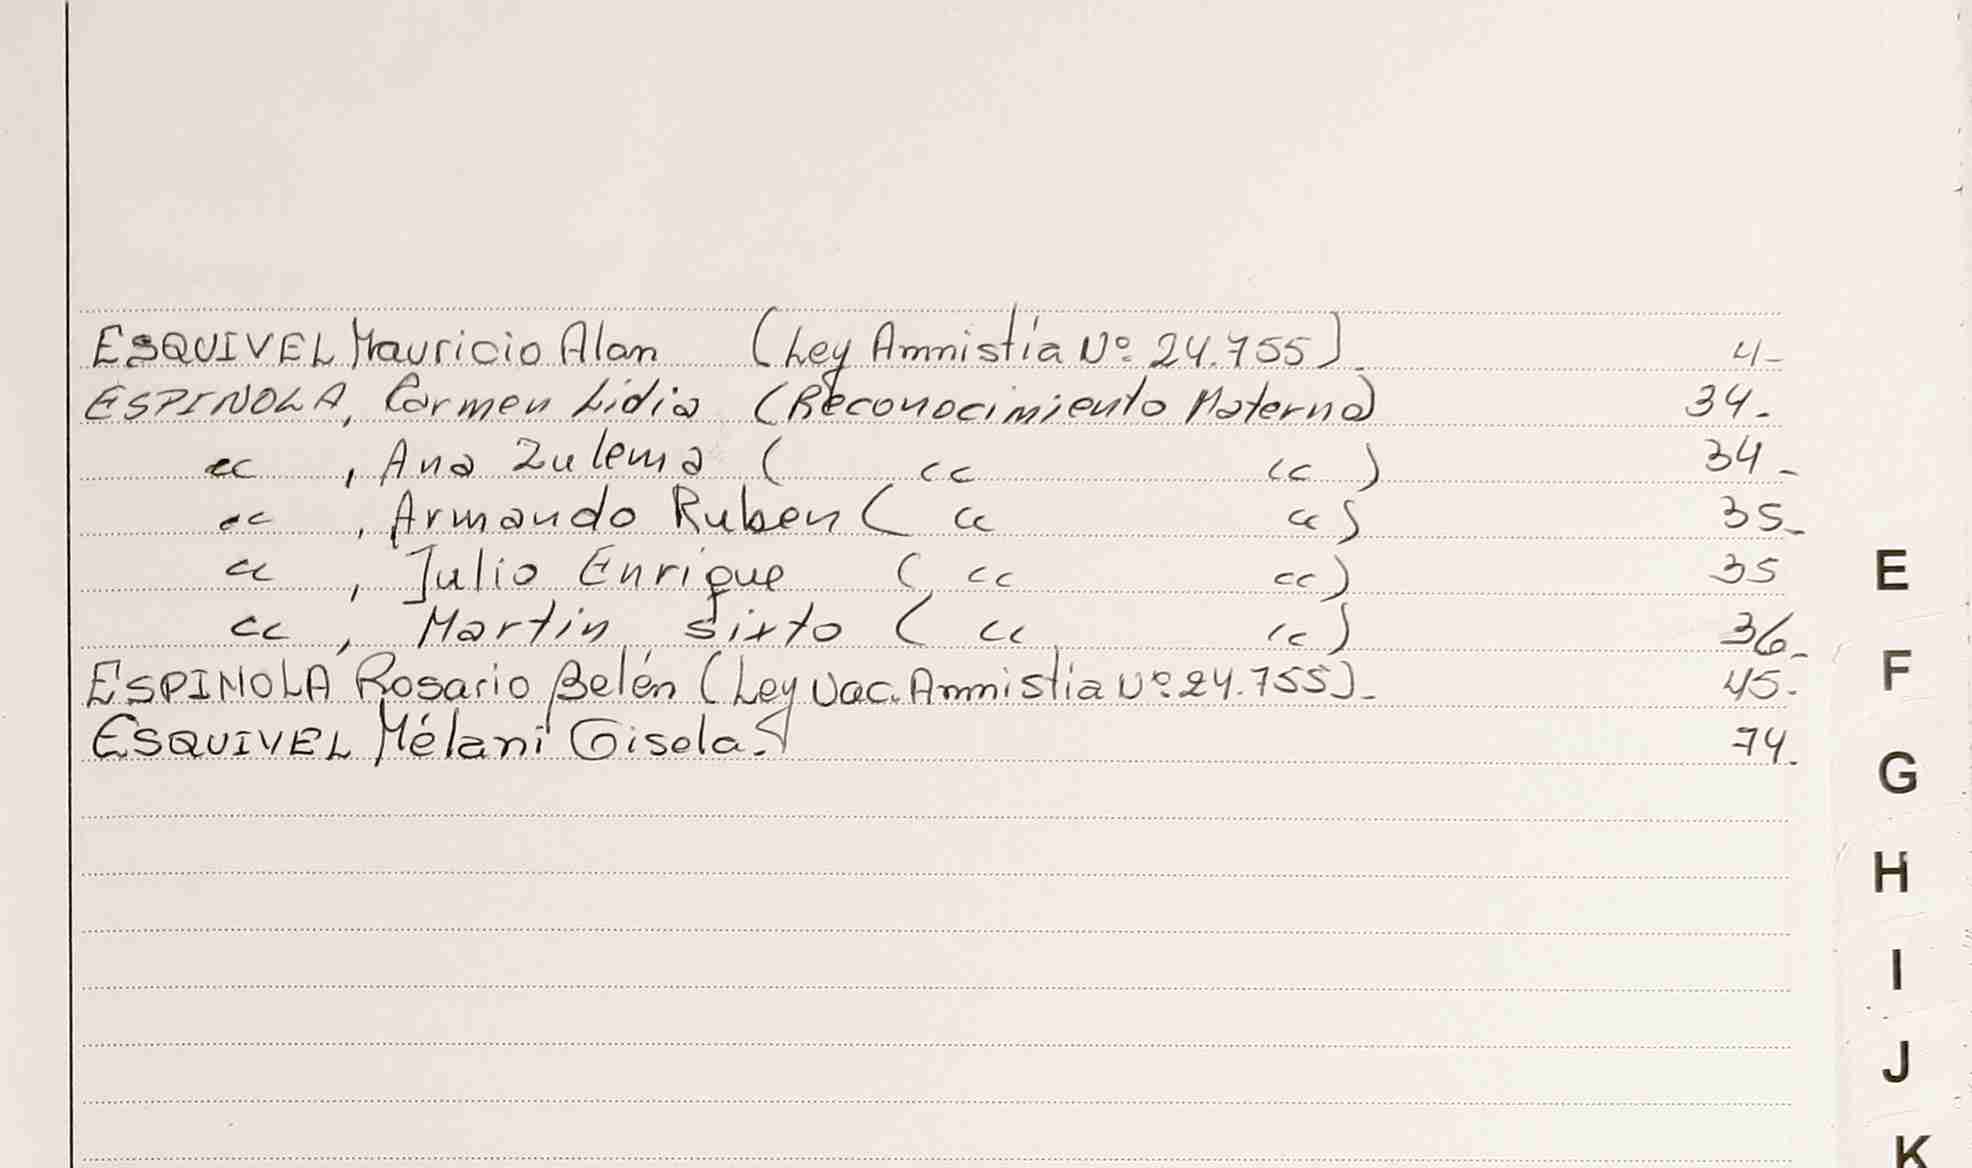 ESQUIVEL Mauricio Alan (Ley Amnistía Nº 24.755). 4-
ESPINOLA, Carmen Lidia (Reconocimiento Materno) 34.
" , Ana Zulema ( " " ) 34-
" , Armando Ruben ( " " ) 35-
" , Julio Enrique ( " " ) 35
" , Martin Sixto ( " " ) 36-
ESPINOLA Rosario Belén (Ley Nac. Amnistía Nº 24.755).- 45.
ESQUIVEL Mélani Gisela. 74.
E
F
G
H
I
J
K